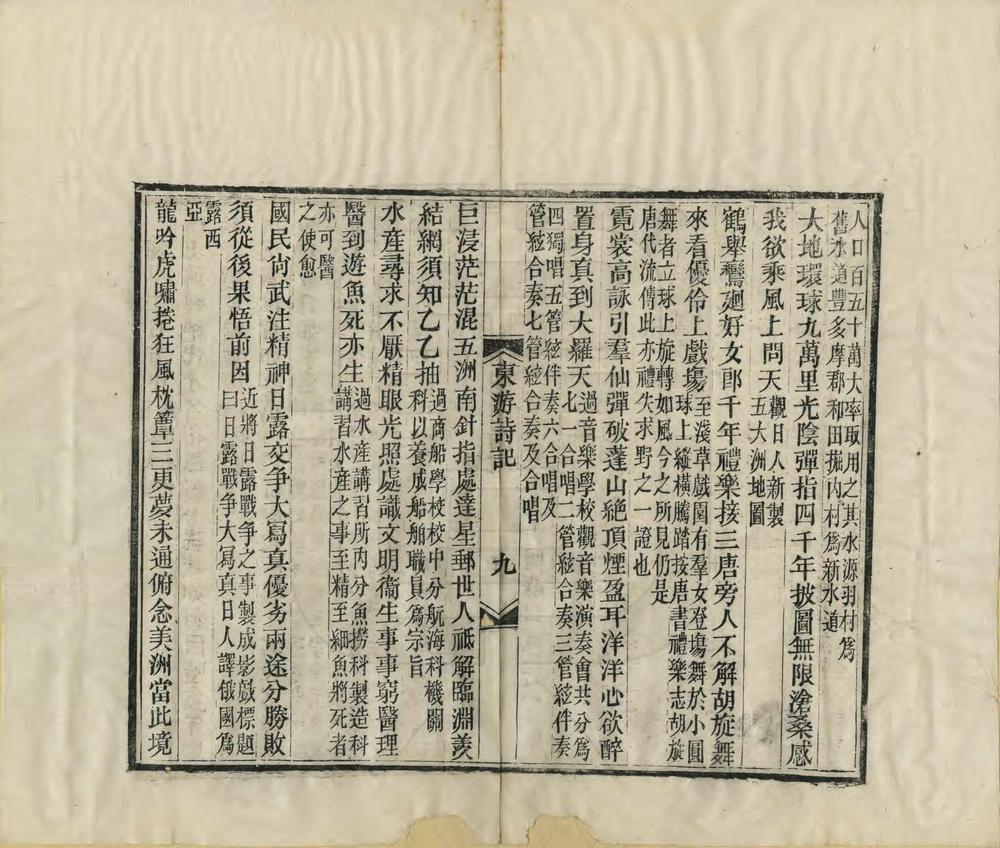 人口百五十萬大率取用之其水源羽村爲
舊水道豐多摩郡和田掘內村爲新水道
大地環球九萬里光陰彈指四千年披圖無限滄桑感
我欲乘風上問天觀日人新製
五大洲地圖
鶴舉鸞廻好女郎千年禮樂接三唐旁人不解胡旋舞
來看優伶上戲塲至淺草戲園有羣女登塲舞於小圓
球上縱橫騰踏按唐書禮樂志胡旋
舞者立球上旋轉如風今之所見仍是
唐代流傳此亦禮失求野之一證也
霓裳高詠引羣仙彈破蓬山絕頂煙盈耳洋洋心欲醉
置身真到大羅天過音樂學校觀音樂演奏會共分爲
七一合唱二管絃合奏三管絃伴奏
四獨唱五管絃伴奏六合唱及
管絃合奏七管絃合奏及合唱
東游詩記
九
巨浸茫茫混五洲南針指處達星郵世人祗解臨淵羨
結網須知乙乙抽過商船學校校中分航海科機關
科以養成船舶職員爲宗旨
水產尋求不厭精眼光照處識文明衞生事事窮醫理
醫到遊魚死亦生過水產講習所內分魚撈科製造科
講習水產之事至精至細魚將死者
亦可醫
之使愈
國民尙武注精神日露交爭大寫真優劣兩途分勝敗
須從後果悟前因近將日露戰爭之事製成影戲標題
曰日露戰爭大寫真日人譯俄國爲
露西
亞
龍吟虎嘯捲狂風枕簟三更夢未通俯念美洲當此境